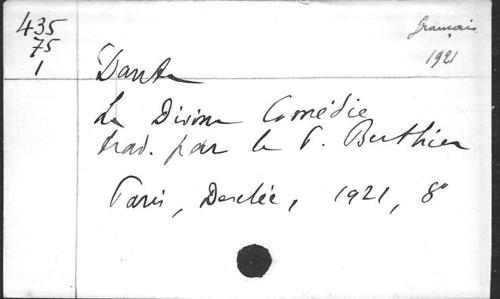 435
75
1
français
1921
Dante
La Divine Comédie
trad. par le P. Berthier
Paris, Desclée, 1921, 8°